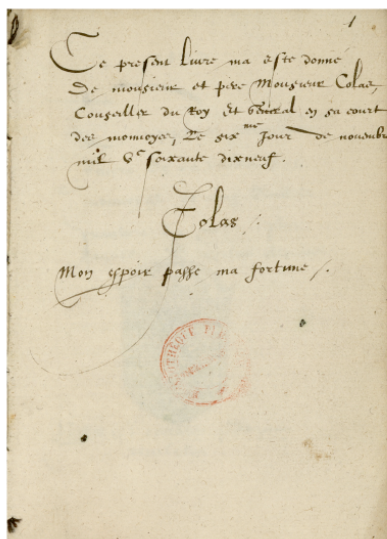 1
Ce present livre ma este donne
De monsieur et pere Monsieur Colas,
Conseiller du Roy et General en sa court
des monnoyes, Le six^me Jour de novembre
mil V^c soixante dixneuf.
Colas
Mon espoir passe ma fortune